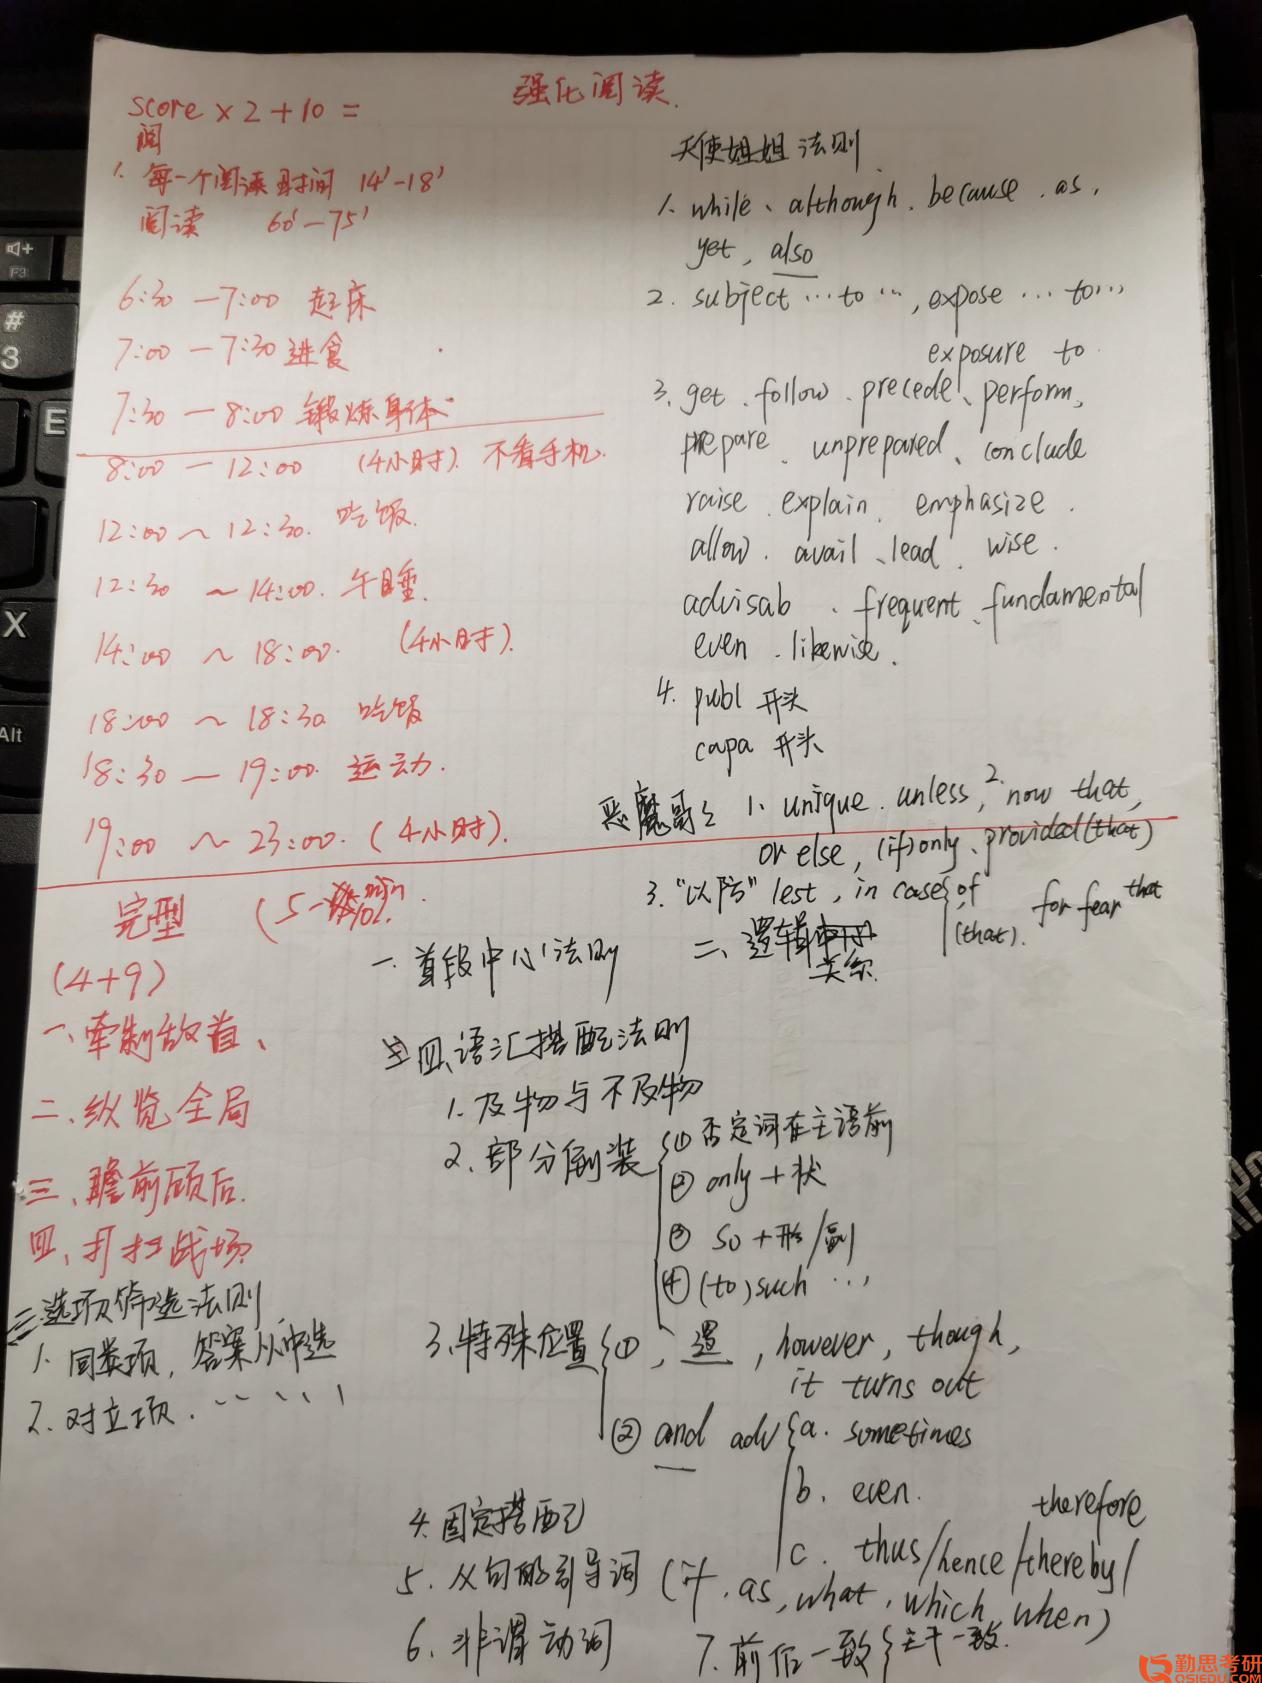 强化阅读.
score × 2 + 10 =
阅
1. 每一个阅读时间 14'-18'
阅读 60'—75'
6:30 —7:00 起床
7:00 — 7:30 进食
7:30 — 8:00 锻炼身体
8:00 — 12:00 (4小时). 不看手机.
12:00 ~ 12:30. 吃饭.
12:30 ~ 14:00. 午睡.
14:00 ~ 18:00. (4小时).
18:00 ~ 18:30 吃饭
18:30 — 19:00. 运动.
19:00 ~ 23:00. (4小时).
天使姐姐法则
1. while、although. because. as.
yet, also
2. subject …to…, expose …to…,
exposure to
3. get. follow. precede、perform,
prepare. unprepared、conclude
raise. explain. emphasize.
allow. avail、lead. wise.
advisab. frequent. fundamental
even. likewise.
4. publ 开头
capa 开头
恶魔哥哥 1. unique. unless, 2. now that,
or else, (if) only、provided (that)
3. "以防" lest, in case { of
(that). for fear that
完型
(4+9)
一、牵制敌首、
二、纵览全局
三、瞻前顾后.
四、打扫战场
一. 首段中心法则
二、逻辑
二选项筛选法则
1. 同类项, 答案从中选
2. 对立项.
四、语汇搭配法则
1. 及物与不及物
2. 部分倒装 { ① 否定词在主语前
② only + 状
③ so + 形/副
④ (to) such …,
3. 特殊位置 { ① , 逻 , however, though,
it turns out
② and adv { a. sometimes
b. even.
c. thus/hence/thereby/
therefore
4. 固定搭配
5. 从句的引导词 (if. as, what, which, when)
6. 非谓动词
7. 前后一致 { 主干一致.
F3
#
3
E
X
Alt
勤思考研
QSIEDU.COM